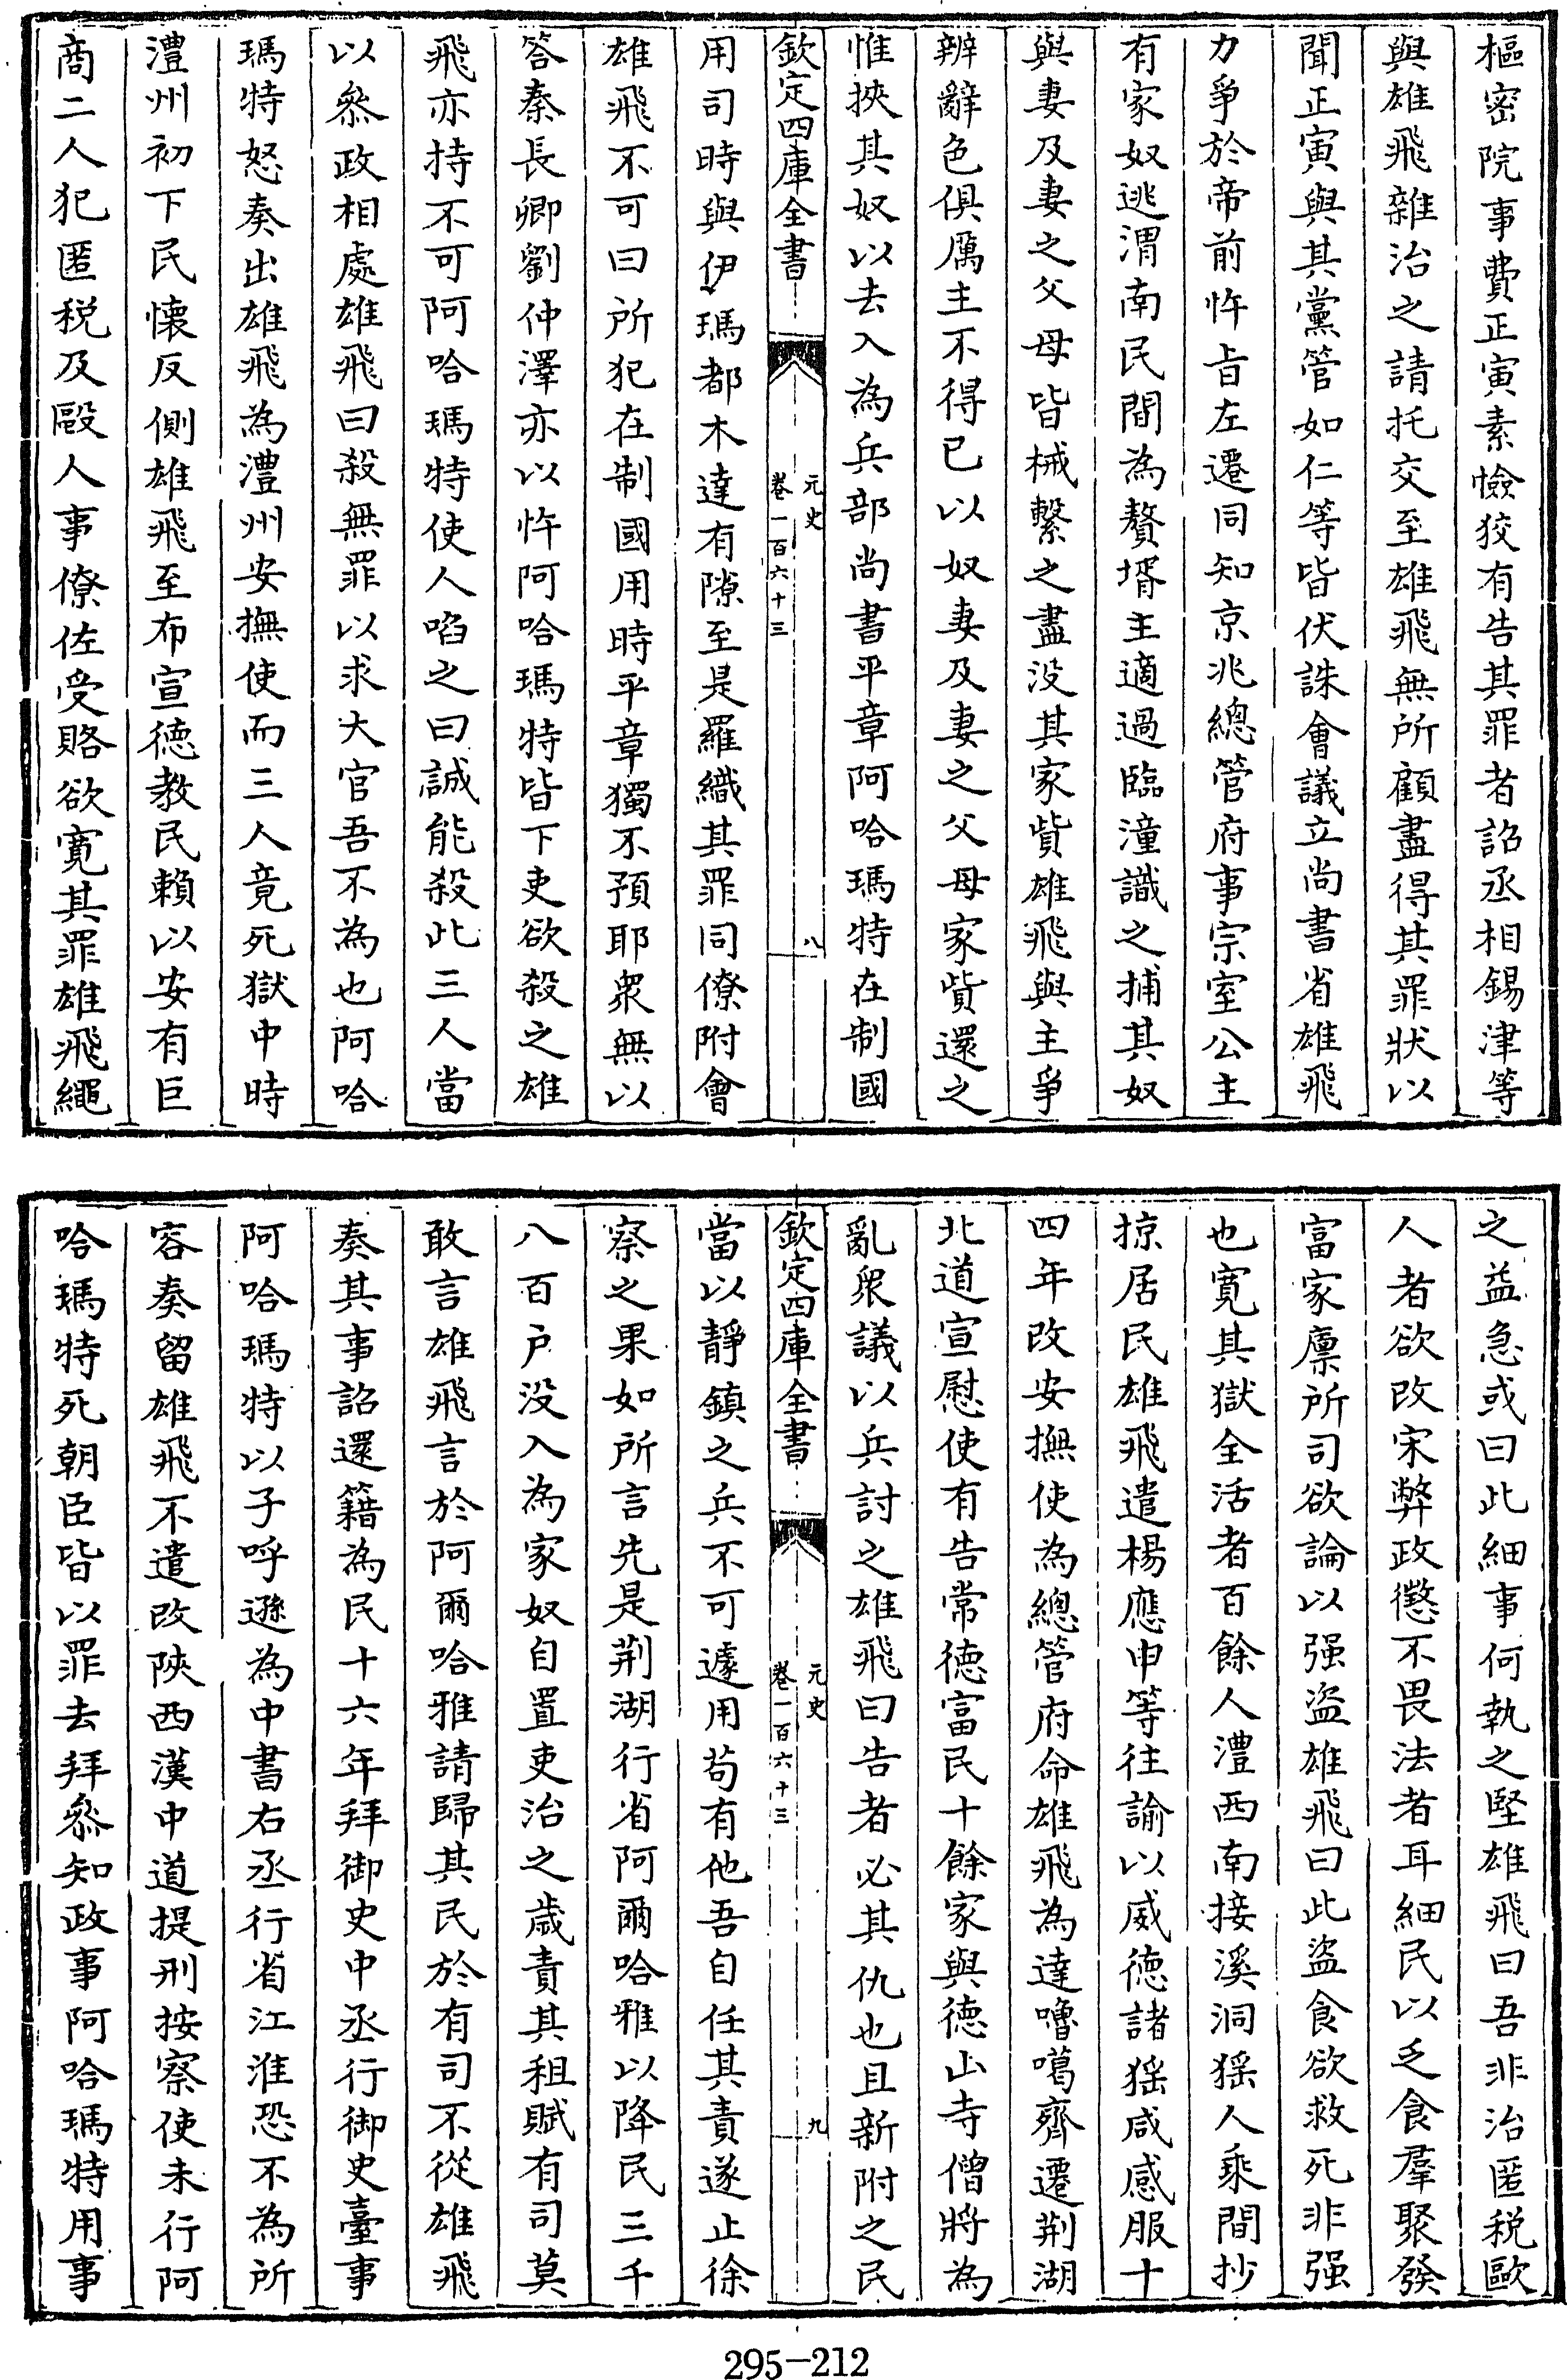 樞密院事費正寅素憸狡有告其罪者詔丞相錫津等
與雄飛雜治之請托交至雄飛無所顧盡得其罪狀以
聞正寅與其黨管如仁等皆伏誅會議立尚書省雄飛
力爭於帝前忤旨左遷同知京兆總管府事宗室公主
有家奴逃渭南民間為贅壻主適過臨潼識之捕其奴
與妻及妻之父母皆械繫之盡没其家貲雄飛與主爭
辨辭色俱厲主不得已以奴妻及妻之父母家貲還之
惟挾其奴以去入為兵部尚書平章阿哈瑪特在制國
欽定四庫全書
元史
卷一百六十三
八
用司時與伊瑪都木達有隙至是羅織其罪同僚附會
雄飛不可曰所犯在制國用時平章獨不預耶衆無以
答秦長卿劉仲澤亦以忤阿哈瑪特皆下吏欲殺之雄
飛亦持不可阿哈瑪特使人啗之曰誠能殺此三人當
以叅政相處雄飛曰殺無罪以求大官吾不為也阿哈
瑪特怒奏出雄飛為澧州安撫使而三人竟死獄中時
澧州初下民懷反側雄飛至布宣徳教民賴以安有巨
商二人犯匿税及毆人事僚佐受賂欲寛其罪雄飛繩
之益急或曰此細事何執之堅雄飛曰吾非治匿税毆
人者欲改宋弊政懲不畏法者耳細民以乏食羣聚發
富家廪所司欲論以强盗雄飛曰此盗食欲救死非强
也寛其獄全活者百餘人澧西南接溪洞猺人乘間抄
掠居民雄飛遣楊應申等往諭以威徳諸猺咸感服十
四年改安撫使為總管府命雄飛為達嚕噶齊遷荆湖
北道宣慰使有告常徳富民十餘家與徳山寺僧將為
亂衆議以兵討之雄飛曰告者必其仇也且新附之民
欽定四庫全書
元史
卷一百六十三
九
當以靜鎮之兵不可遽用茍有他吾自任其責遂止徐
察之果如所言先是荆湖行省阿爾哈雅以降民三千
八百户没入為家奴自置吏治之歲責其租賦有司莫
敢言雄飛言於阿爾哈雅請歸其民於有司不從雄飛
奏其事詔還籍為民十六年拜御史中丞行御史臺事
阿哈瑪特以子呼遜為中書右丞行省江淮恐不為所
容奏留雄飛不遣改陜西漢中道提刑按察使未行阿
哈瑪特死朝臣皆以罪去拜叅知政事阿哈瑪特用事
295-212